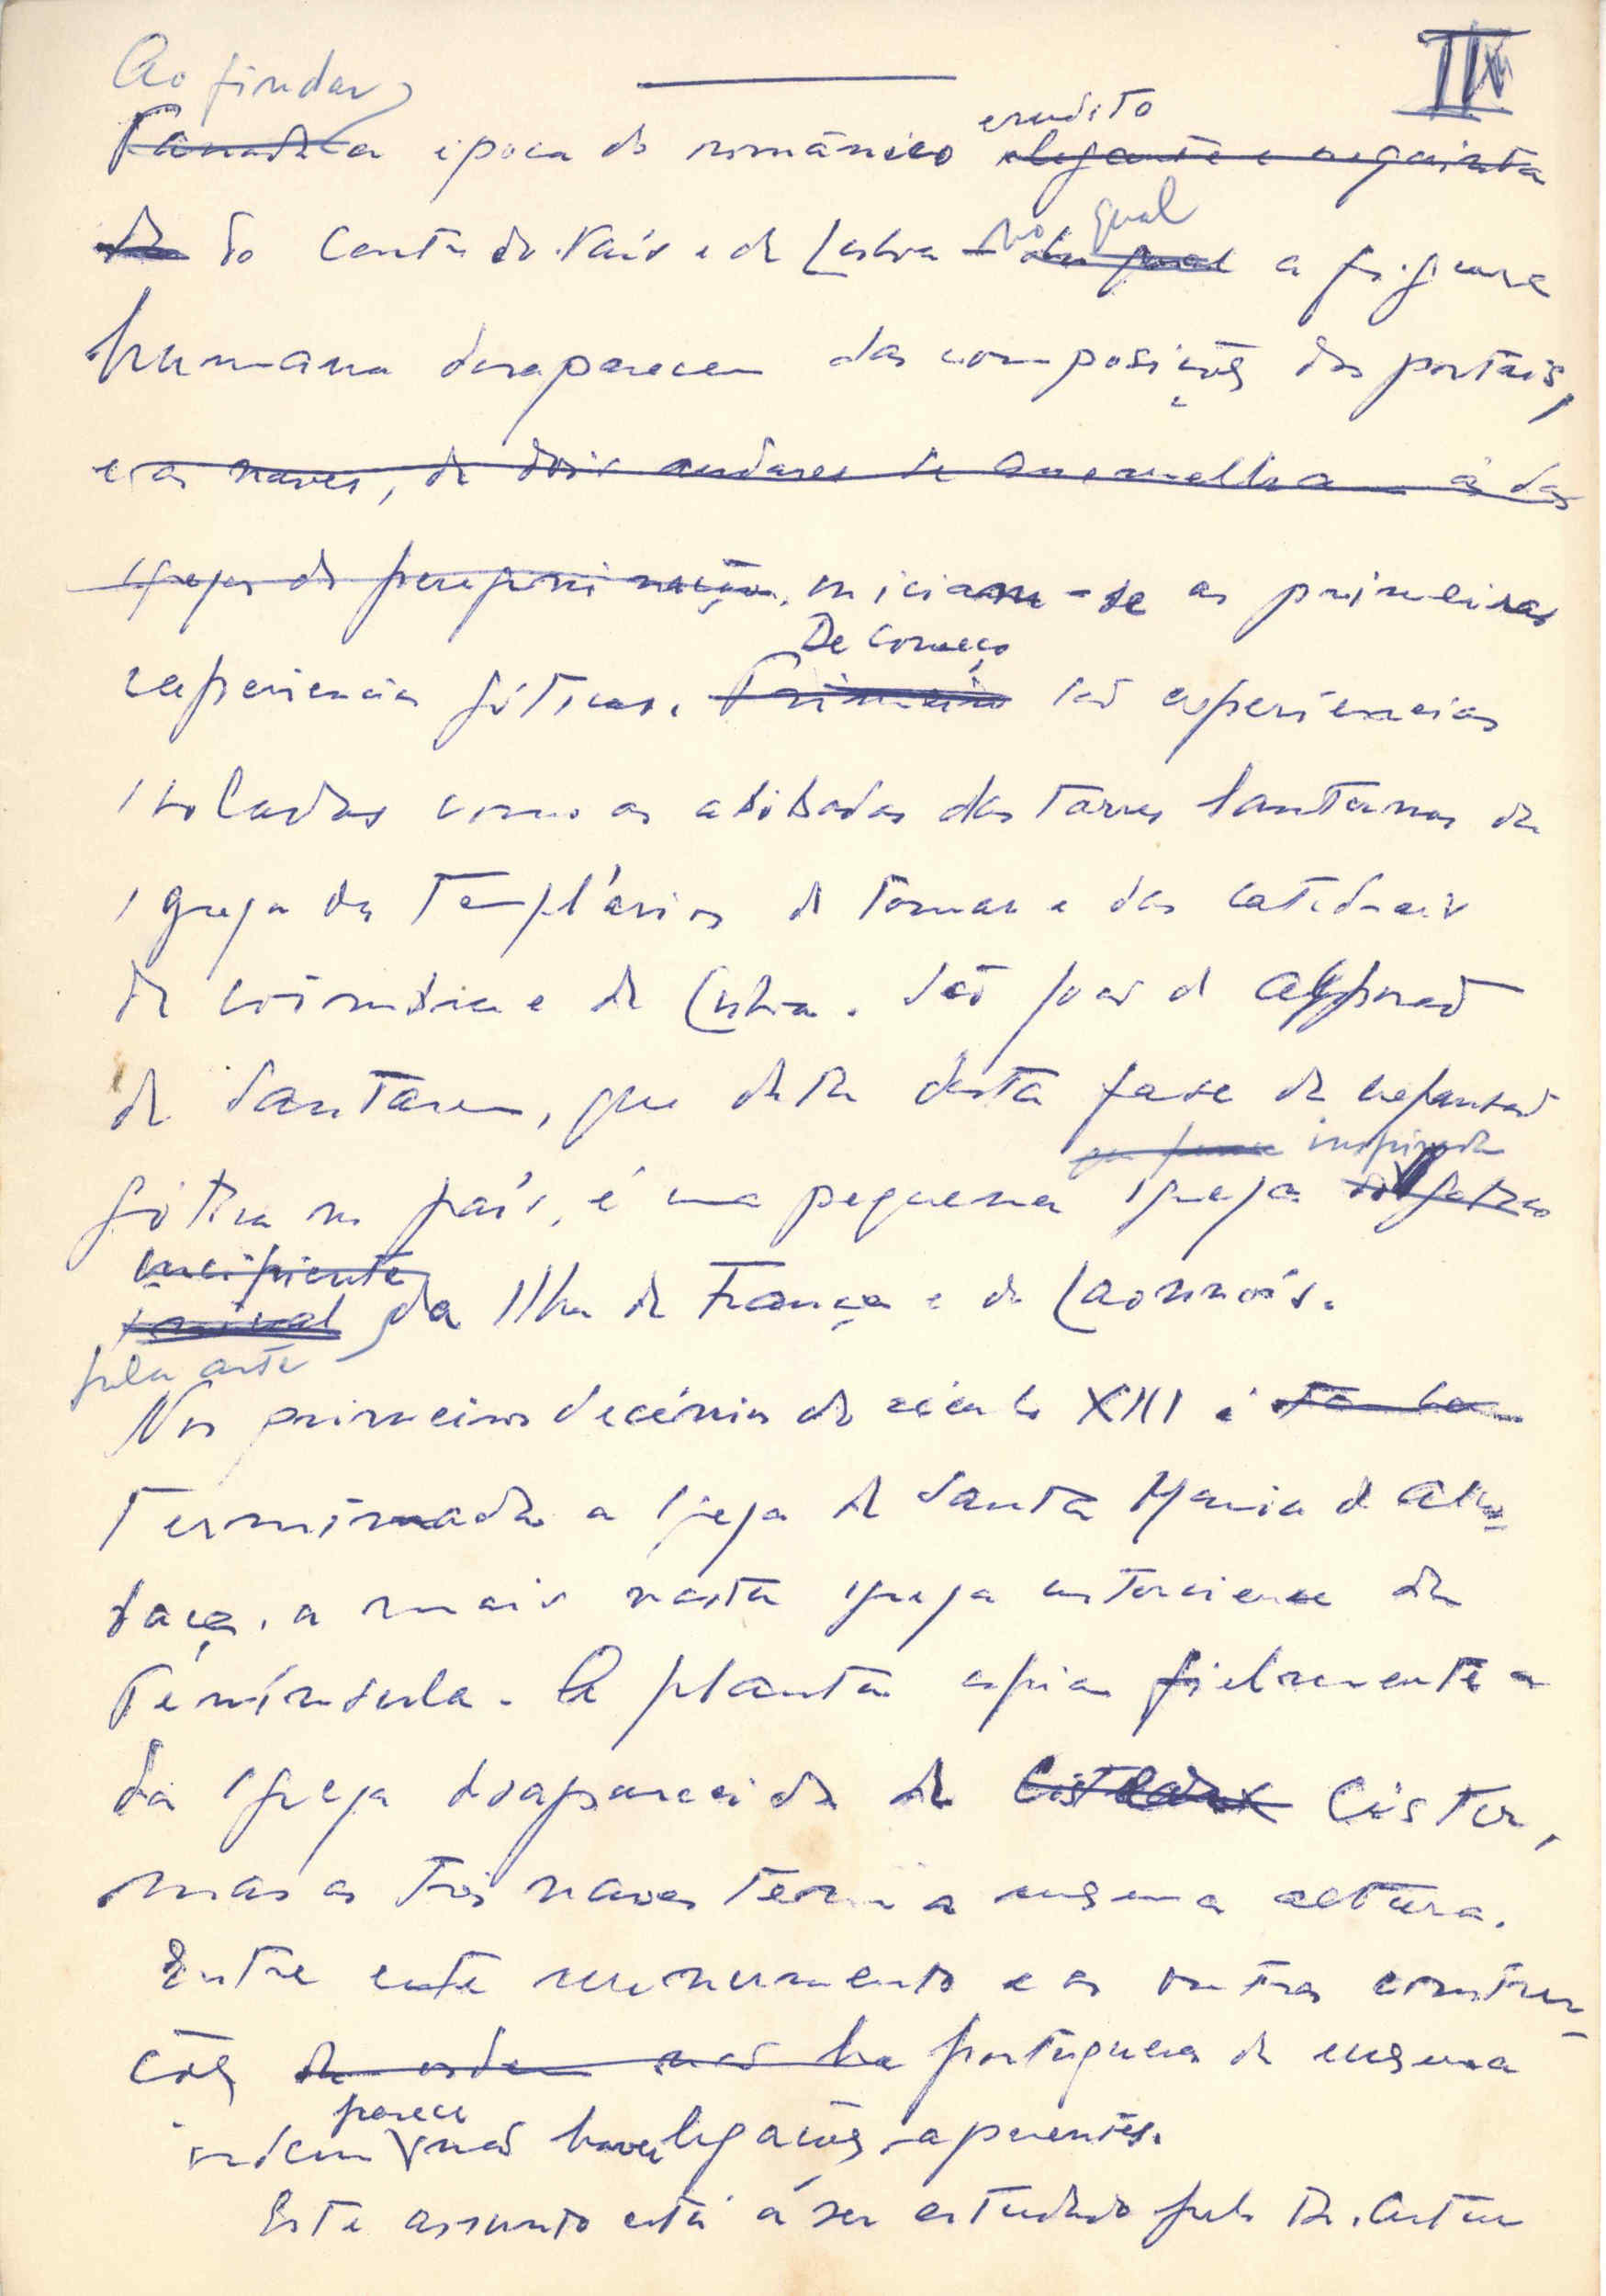 III
Ao findar
~~Passada~~ a época do românico ~~elegante e requinta~~ erudito
~~da~~ do Centro do País e de Lisboa ~~da qual~~ no qual a figura
humana desaparece das composições dos portais,
~~e as naves, de dois andares se assemelha às das~~
~~igrejas de peregrinação~~, iniciam-se as primeiras
experiencias góticas. ~~Primeiro~~ De começo são experiências
isoladas como as abóbadas das torres lanternas da
igreja dos Templários de Tomar e das catedrais
de Coimbra e de Lisboa. São João de Alporão
de Santarem, que data desta fase da expansão
gótica no país, é uma pequena igreja inspirada
~~incipiente~~
pela arte da Ilha de França e do Laonnois.
Nos primeiros decénios do século XIII é ~~tambem~~
terminada a igreja de Santa Maria de Alco-
baça, a mais vasta igreja cisterciense da
Península. A planta copia fielmente a
da igreja desaparecida de Cister,
mas as três naves tem a mesma altura.
Entre este monumento e as outras constru-
ções ~~da ordem não ha~~ portuguesas da mesma
ordem parece não haver ligações aparentes.
Este assunto está a ser estudado pelo Dr. Artur